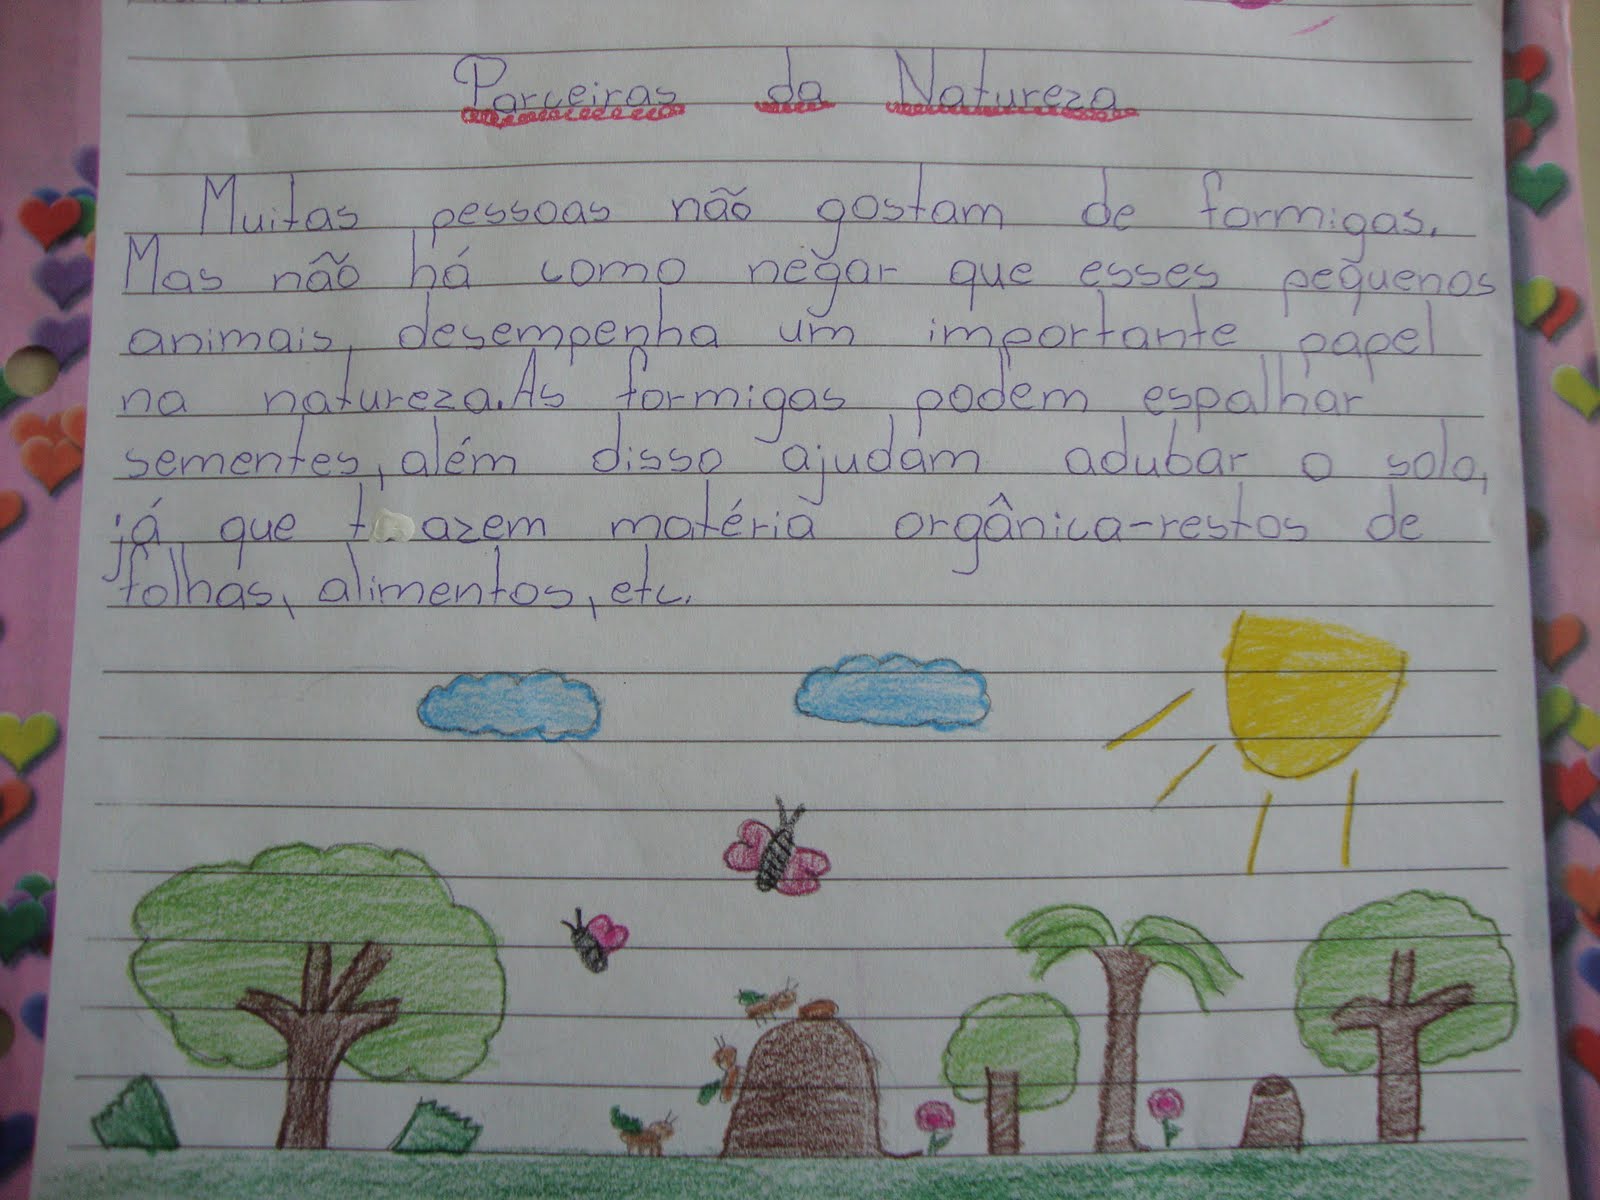 Parceiras da Natureza
Muitas pessoas não gostam de formigas.
Mas não há como negar que esses pequenos
animais, desempenha um importante papel
na natureza. As formigas podem espalhar
sementes, além disso ajudam adubar o solo,
já que t azem matéria orgânica-restos de
folhas, alimentos, etc.